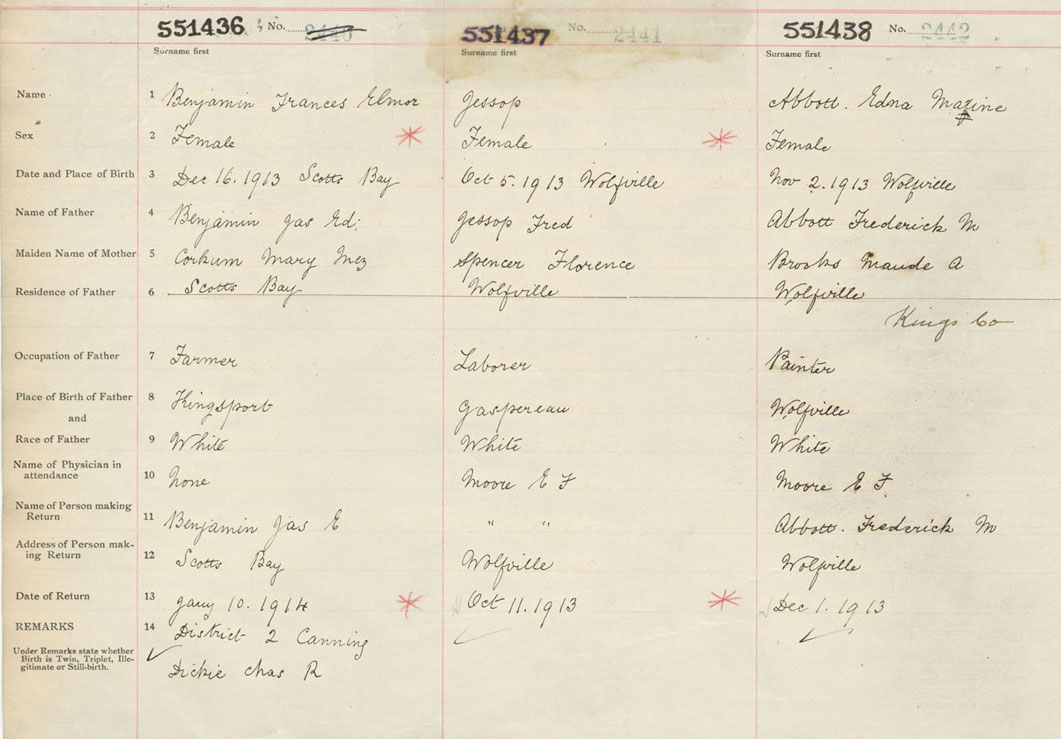 551436 No. 2440 551437 No. 2441 551438 No. 2442
Surname first Surname first Surname first
Name 1 Benjamin Frances Elmor Jessop Abbott. Edna Maxine
Sex 2 Female Female Female
Date and Place of Birth 3 Dec 16. 1913 Scotts Bay Oct 5. 1913 Wolfville Nov 2. 1913 Wolfville
Name of Father 4 Benjamin Jas Ed: Jessop Fred Abbott Frederick M
Maiden Name of Mother 5 Corkum Mary Inez Spencer Florence Brooks Maude A
Residence of Father 6 Scotts Bay Wolfville Wolfville
Kings Co
Occupation of Father 7 Farmer Laborer Painter
Place of Birth of Father 8 Kingsport Gaspereau Wolfville
and
Race of Father 9 White White White
Name of Physician in
attendance 10 None Moore E F Moore E F.
Name of Person making
Return 11 Benjamin Jas E " " Abbott. Frederick M
Address of Person mak-
ing Return 12 Scotts Bay Wolfville Wolfville
Date of Return 13 Jany 10. 1914 Oct 11. 1913 Dec 1. 1913
REMARKS 14 District 2 Canning
Under Remarks state whether
Birth is Twin, Triplet, Ille-
gitimate or Still-birth.
Dickie Chas R